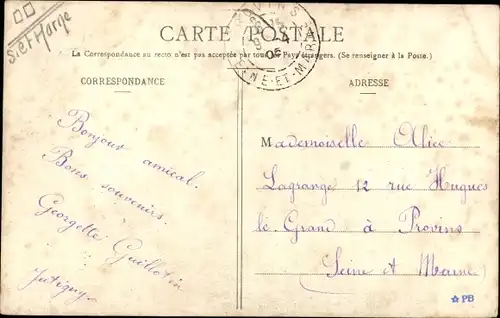 CARTE POSTALE
La Correspondance au recto n'est pas acceptée par tous les Pays étrangers. (Se renseigner à la Poste.)
CORRESPONDANCE
ADRESSE
Bonjour amical.
Bons souvenirs.
Georgette Guillotin
Jutigny
Mademoiselle Alice
Lagrange 12 rue Hugues
le Grand à Provins
Seine et Marne
PROVINS
06
SEINE-ET-MARNE
S. et Marne
PB